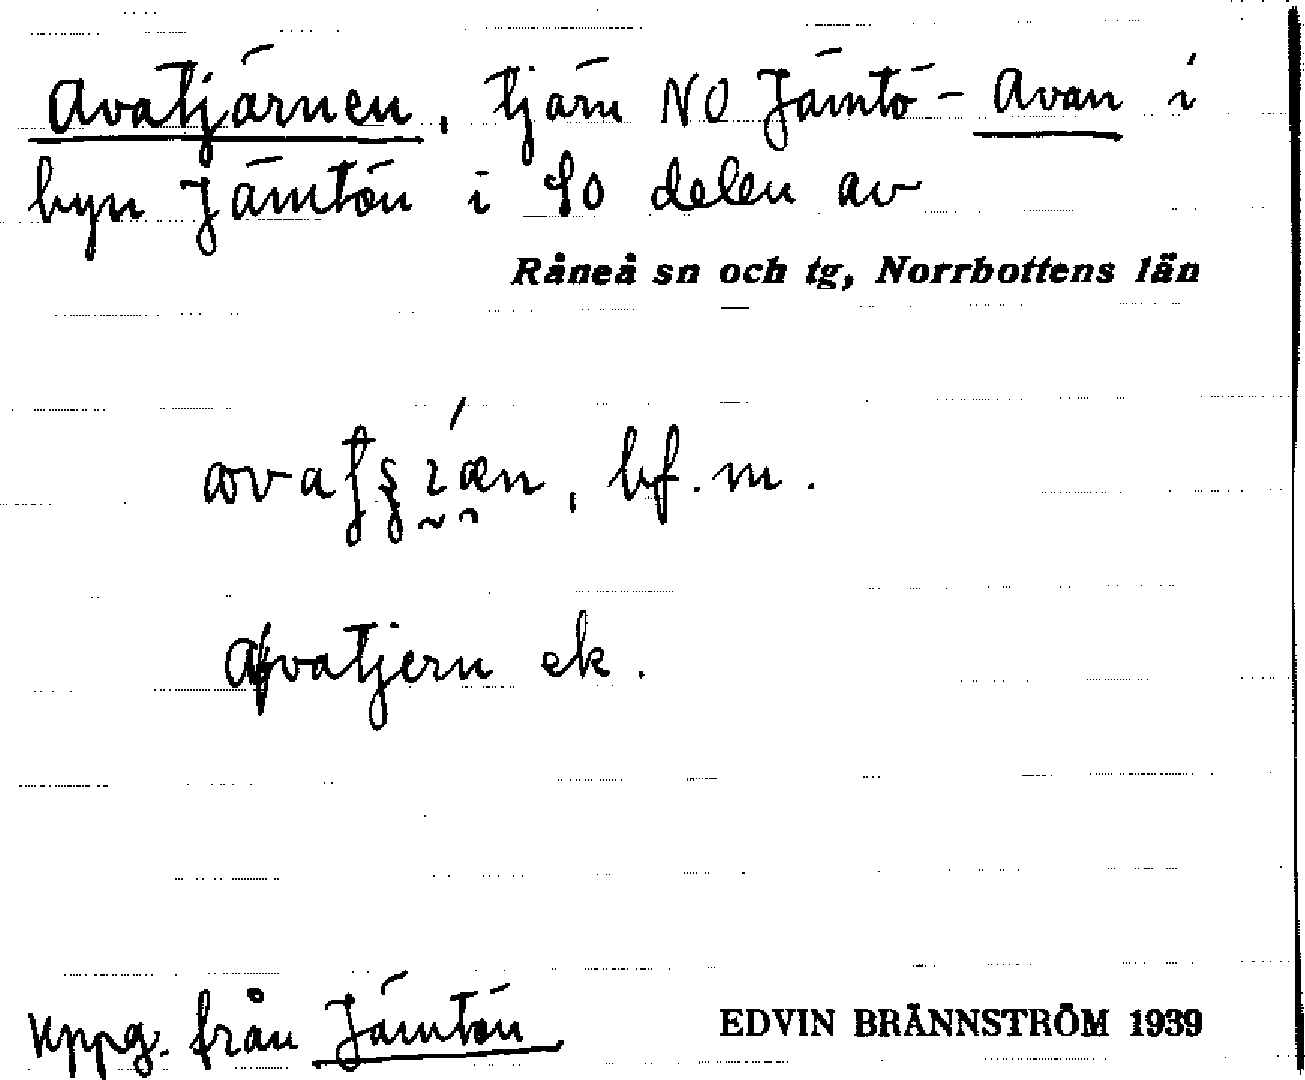 Avatjärnen, tjärn NO Jämtö-Avan i
byn Jämtön i So delen av
Råneå sn och tg, Norrbottens län
bf. m.
avatjern ek.
Uppg. från Jämtön
EDVIN BRÄNNSTRÖM 1939